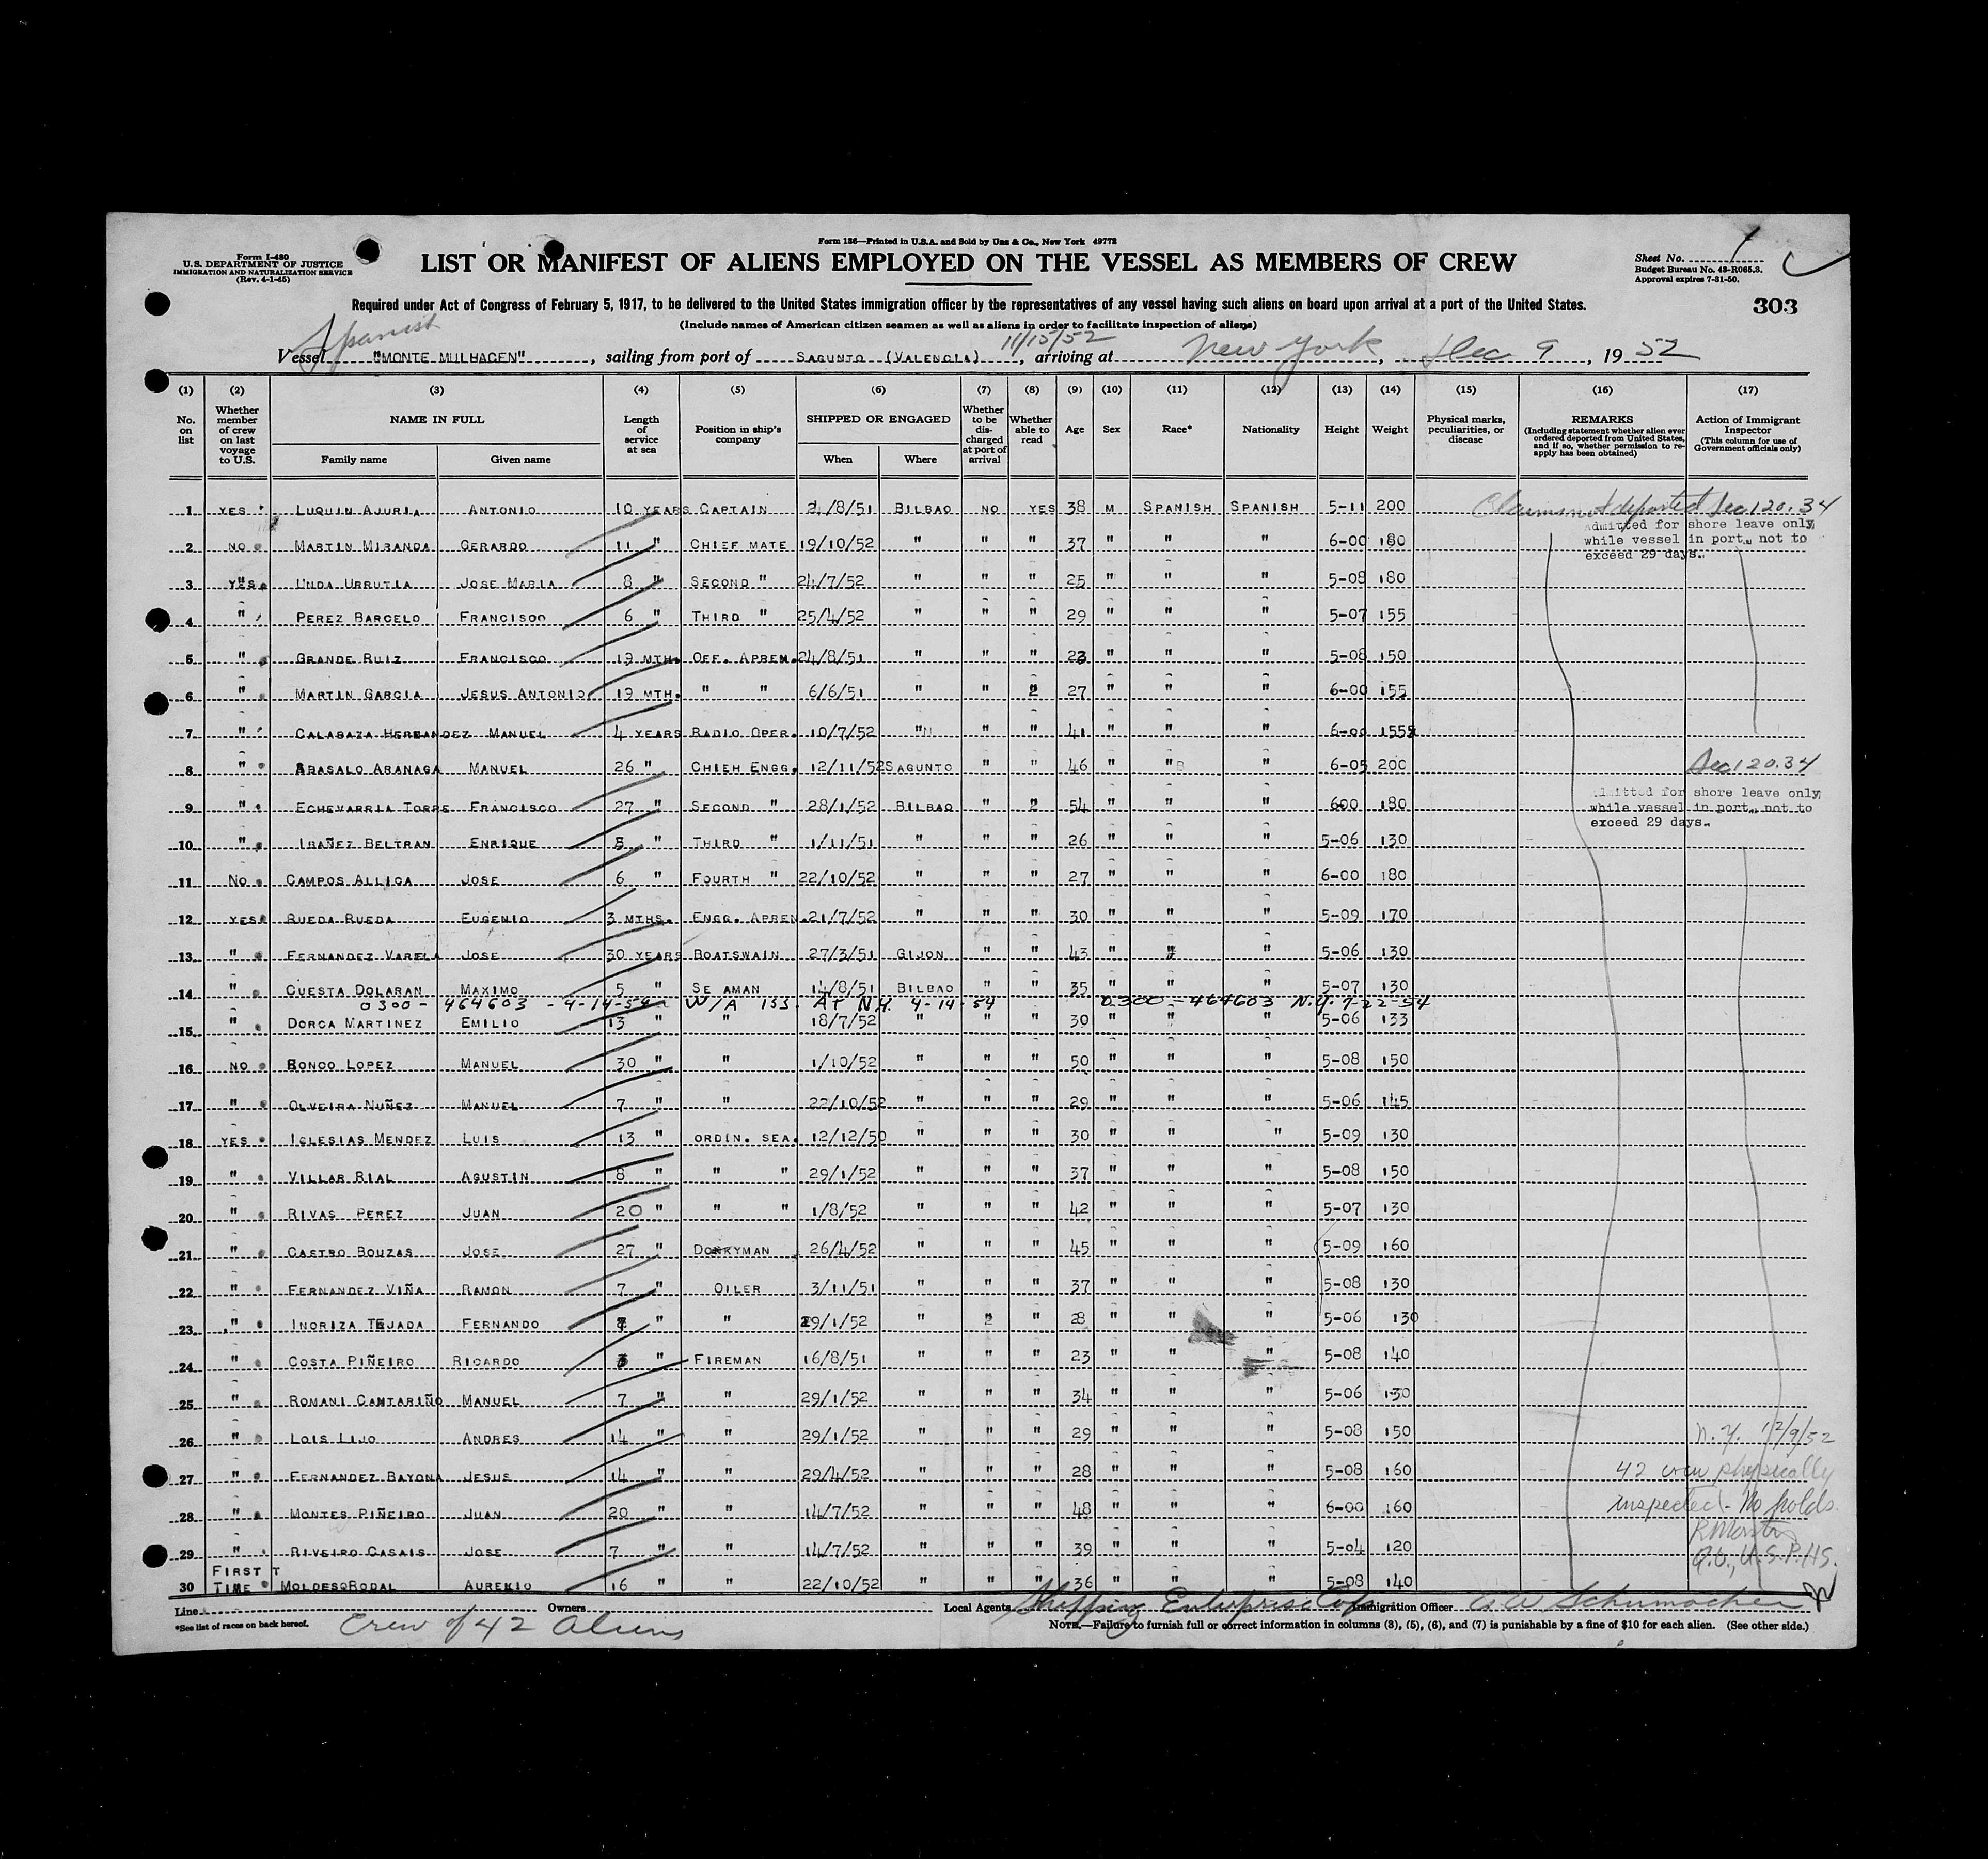 Form 136—Printed in U.S.A. and Sold by Unz & Co., New York 49772
Form I-480
U.S. DEPARTMENT OF JUSTICE
IMMIGRATION AND NATURALIZATION SERVICE
(Rev. 4-1-45)
LIST OR MANIFEST OF ALIENS EMPLOYED ON THE VESSEL AS MEMBERS OF CREW
Sheet No. 1
Budget Bureau No. 43-R065.3.
Approval expires 7-31-50.
Required under Act of Congress of February 5, 1917, to be delivered to the United States immigration officer by the representatives of any vessel having such aliens on board upon arrival at a port of the United States.
303
(Include names of American citizen seamen as well as aliens in order to facilitate inspection of aliens)
Spanish
11/15/52
Vessel "MONTE MULHACEN", sailing from port of SAGUNTO (VALENCIA), arriving at New York, Dec 9, 1952
(1) (2) (3) (4) (5) (6) (7) (8) (9) (10) (11) (12) (13) (14) (15) (16) (17)
No. on list
Whether member of crew on last voyage to U.S.
NAME IN FULL
Family name
Given name
Length of service at sea
Position in ship's company
SHIPPED OR ENGAGED
When
Where
Whether to be discharged at port of arrival
Whether able to read
Age
Sex
Race*
Nationality
Height
Weight
Physical marks, peculiarities, or disease
REMARKS
(Including statement whether alien ever ordered deported from United States, and if so, whether permission to reapply has been obtained)
Action of Immigrant Inspector
(This column for use of Government officials only)
1 YES LUQUIN AJURIA ANTONIO 10 YEARS CAPTAIN 24/8/51 BILBAO NO YES 38 M SPANISH SPANISH 5-11 200 Claims not deported Sec 120.34
Admitted for shore leave only, while vessel in port, not to exceed 29 days.
2 NO MARTIN MIRANDA GERARDO 11 " CHIEF MATE 19/10/52 " " " 37 " " " 6-00 180
3 YES UNDA URRUTIA JOSE MARIA 8 " SECOND " 24/7/52 " " " 25 " " " 5-08 180
4 " PEREZ BARCELO FRANCISCO 6 " THIRD " 25/4/52 " " " 29 " " " 5-07 155
5 " GRANDE RUIZ FRANCISCO 19 MTH. OFF. APREN. 24/8/51 " " " 23 " " " 5-08 150
6 " MARTIN GARCIA JESUS ANTONIO 19 MTH. " " 6/6/51 " " " 27 " " " 6-00 155
7 " CALABAZA HERNANDEZ MANUEL 4 YEARS RADIO OPER. 10/7/52 " " " 41 " " " 6-00 155
8 " ABASALO ARANAGA MANUEL 26 " CHIEH ENGG. 12/11/52 SAGUNTO " " 46 " " " 6-05 200 Sec 120.34
Admitted for shore leave only, while vessel in port, not to exceed 29 days.
9 " ECHEVARRIA TORRE FRANCISCO 27 " SECOND " 28/1/52 BILBAO " " 54 " " " 600 180
10 " IBAÑEZ BELTRAN ENRIQUE 5 " THIRD " 1/11/51 " " " 26 " " " 5-06 130
11 NO CAMPOS ALLICA JOSE 6 " FOURTH " 22/10/52 " " " 27 " " " 6-00 180
12 YES RUEDA RUEDA EUGENIO 3 MTHS. ENGG. APREN. 21/7/52 " " " 30 " " " 5-09 170
13 " FERNANDEZ VARELA JOSE 30 YEARS BOATSWAIN 27/3/51 GIJON " " 43 " " " 5-06 130
14 " CUESTA DOLARAN MAXIMO 5 " SE AMAN 14/8/51 BILBAO " " 35 " " " 5-07 130
0300-464603 - 4-14-54 W/A ISS. AT N.Y. 4-14-54 0300-464603 N.Y. 7-22-54
15 " DORCA MARTINEZ EMILIO 13 " " 18/7/52 " " " 30 " " " 5-06 133
16 NO BONCO LOPEZ MANUEL 30 " " 1/10/52 " " " 50 " " " 5-08 150
17 " OLVEIRA NUÑEZ MANUEL 7 " " 22/10/52 " " " 29 " " " 5-06 145
18 YES IGLESIAS MENDEZ LUIS 13 " ORDIN. SEA. 12/12/50 " " " 30 " " " 5-09 130
19 " VILLAR RIAL AGUSTIN 8 " " " 29/1/52 " " " 37 " " " 5-08 150
20 " RIVAS PEREZ JUAN 20 " " " 1/8/52 " " " 42 " " " 5-07 130
21 " CASTRO BOUZAS JOSE 27 " DONKYMAN 26/4/52 " " " 45 " " " 5-09 160
22 " FERNANDEZ VIÑA RAMON 7 " OILER 3/11/51 " " " 37 " " " 5-08 130
23 " INORIZA TEJADA FERNANDO " " 29/1/52 " " " 28 " " " 5-06 130
24 " COSTA PIÑEIRO RICARDO " FIREMAN 16/8/51 " " " 23 " " " 5-08 140
25 " ROMANI CANTARIÑO MANUEL 7 " " 29/1/52 " " " 34 " " " 5-06 130
26 " LOIS LIJO ANDRES 14 " " 29/1/52 " " " 29 " " " 5-08 150 N.Y. 12/9/52
27 " FERNANDEZ BAYONA JESUS 14 " " 29/4/52 " " " 28 " " " 5-08 160 42 crew physically
28 " MONTES PIÑEIRO JUAN 20 " " 14/7/52 " " " 48 " " " 6-00 160 inspected - No holds.
29 " RIVEIRO CASAIS JOSE 7 " " 14/7/52 " " " 39 " " " 5-04 120 U.S.P.H.S.
30 FIRST TIME MOLDES RODAL AURELIO 16 " " 22/10/52 " " " 36 " " " 5-08 140
Line Owners Local Agents Shipping Enterprise Corp Immigration Officer A W Schumacher
*See list of races on back hereof.
Crew of 42 Aliens
NOTE.—Failure to furnish full or correct information in columns (3), (5), (6), and (7) is punishable by a fine of $10 for each alien. (See other side.)